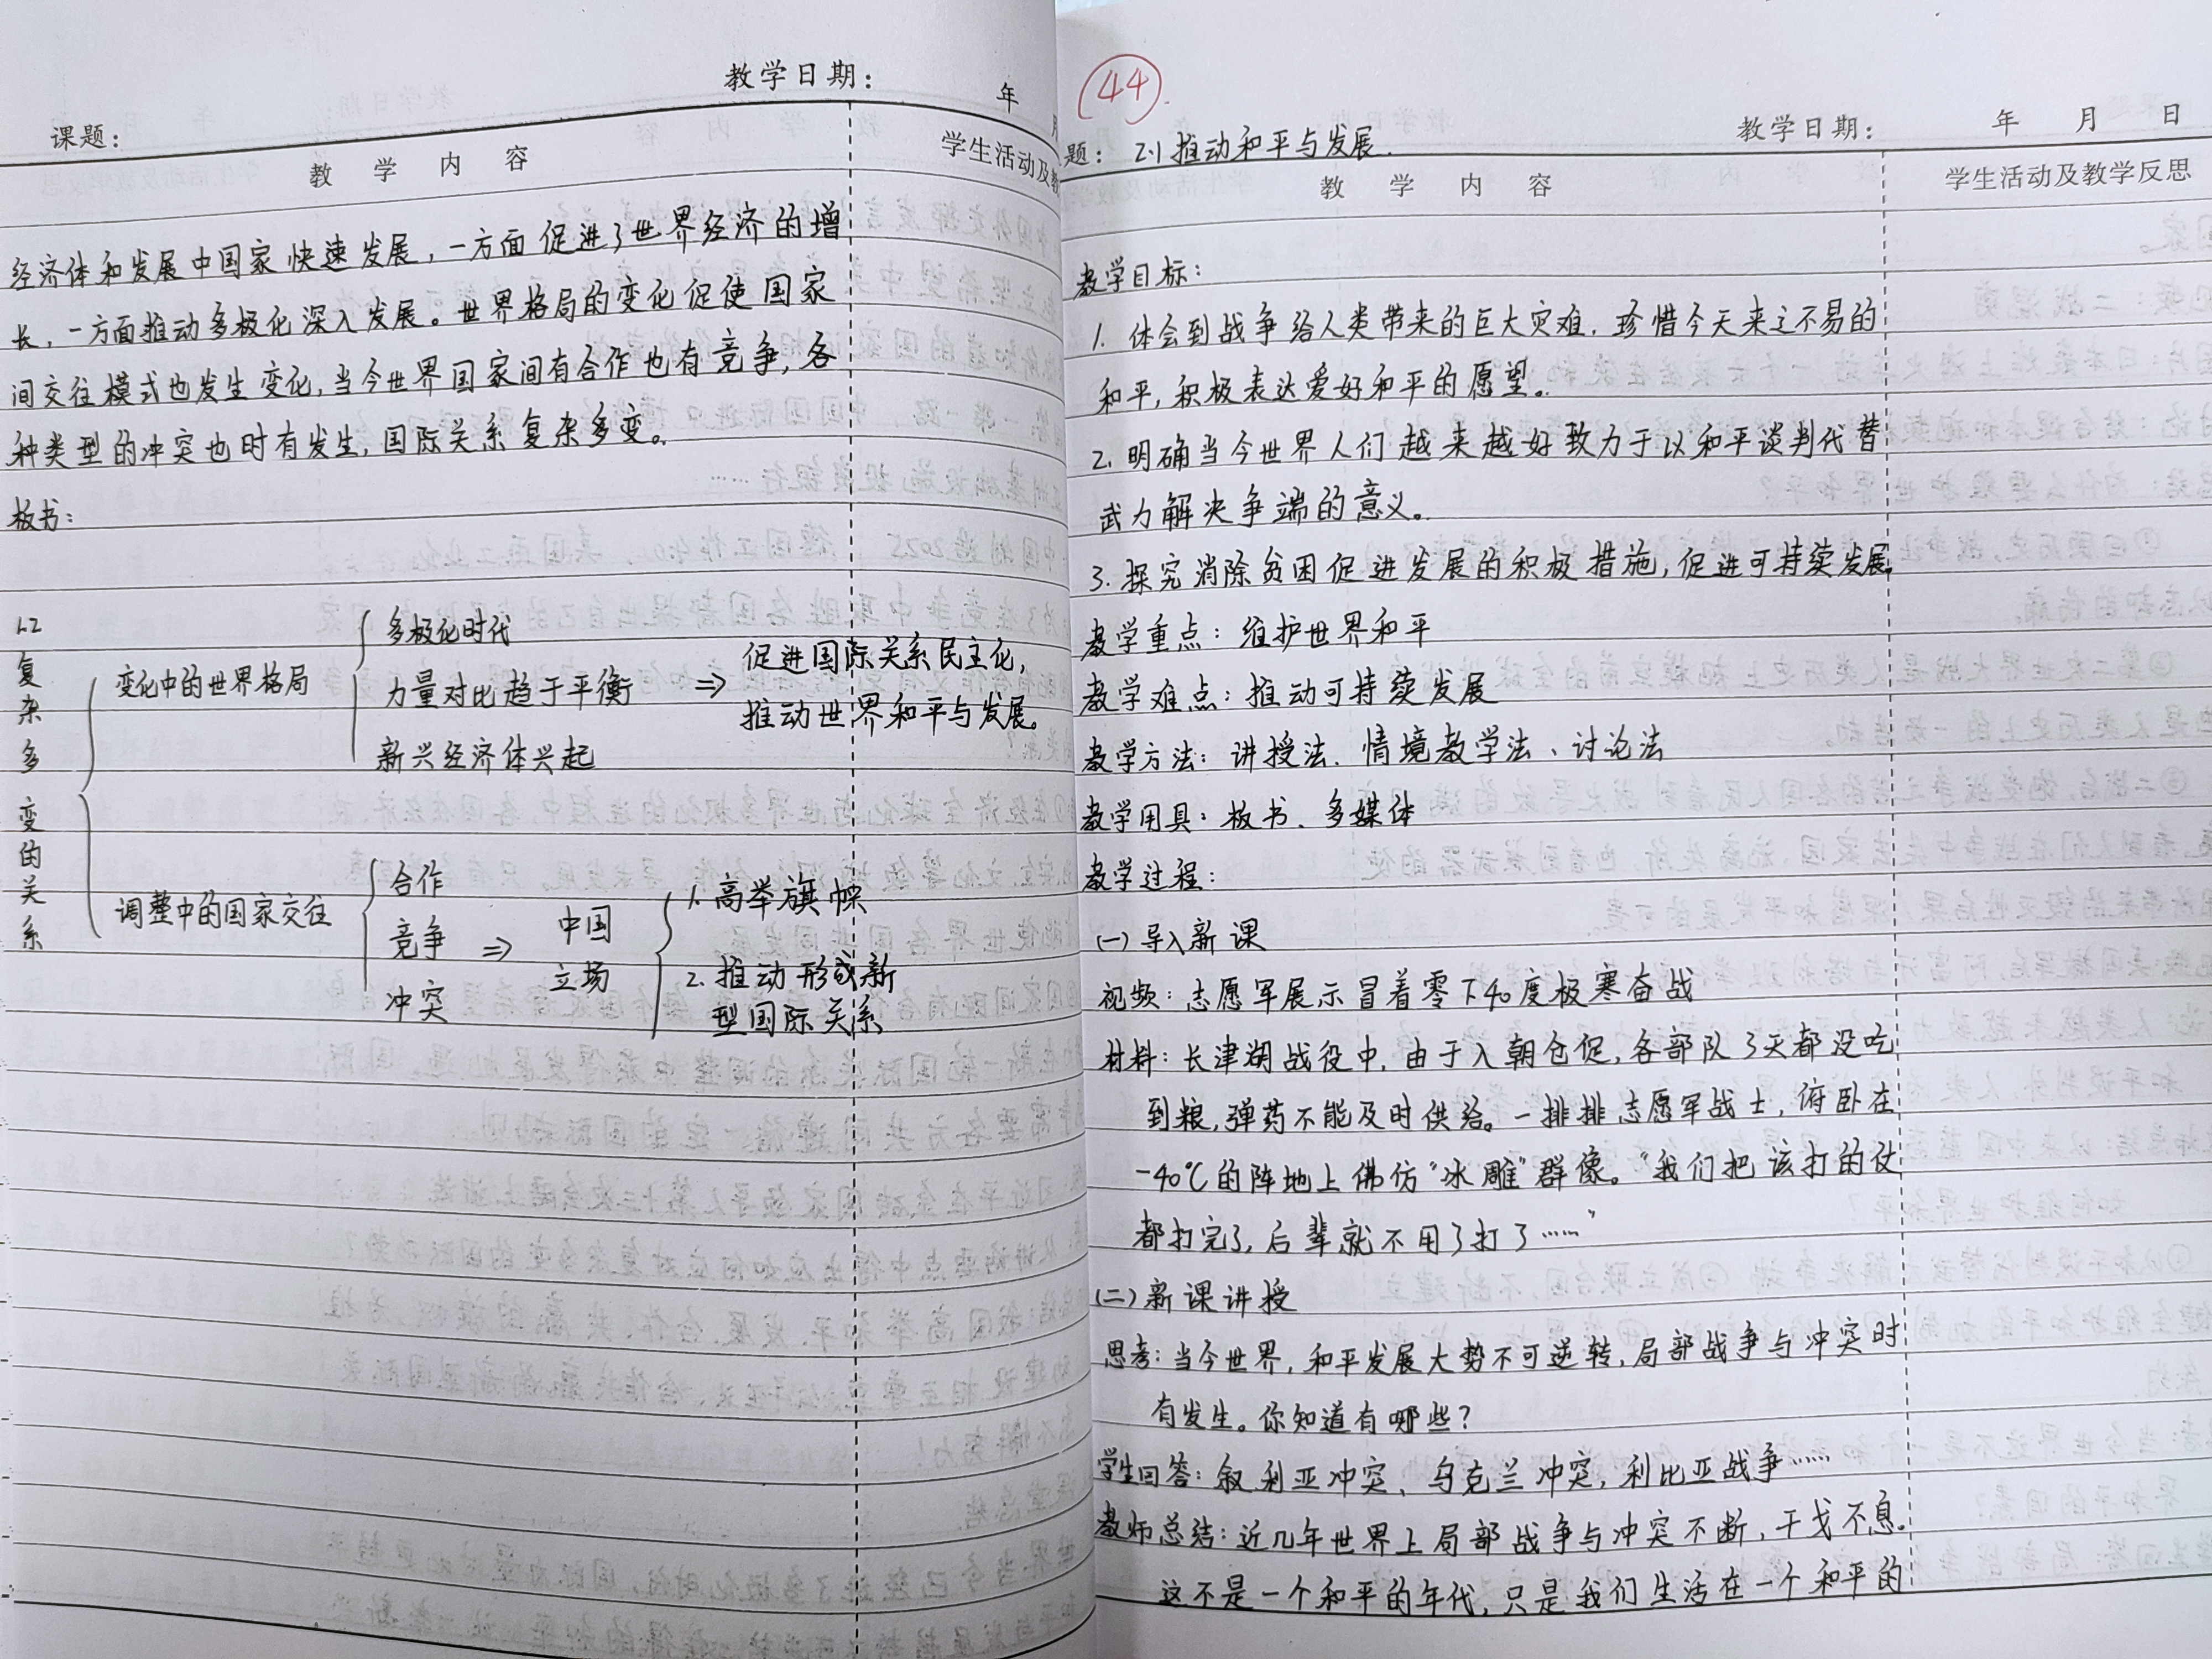 课题：
教学日期： 年
教 学 内 容 学生活动及教
经济体和发展中国家快速发展，一方面促进了世界经济的增
长，一方面推动多极化深入发展。世界格局的变化促使国家
间交往模式也发生变化，当今世界国家间有合作也有竞争，各
种类型的冲突也时有发生，国际关系复杂多变。
板书：
L2 复杂多变的关系
变化中的世界格局
多极化时代
力量对比趋于平衡
新兴经济体兴起
⇒ 促进国际关系民主化，
推动世界和平与发展。
调整中的国家交往
合作
竞争
冲突
⇒ 中国
立场
1. 高举旗帜
2. 推动形成新
型国际关系
44
题： 2.1 推动和平与发展.
教学日期： 年 月 日
教 学 内 容 学生活动及教学反思
教学目标：
1. 体会到战争给人类带来的巨大灾难，珍惜今天来之不易的
和平，积极表达爱好和平的愿望。
2. 明确当今世界人们越来越好致力于以和平谈判代替
武力解决争端的意义。
3. 探究消除贫困促进发展的积极措施，促进可持续发展
教学重点：维护世界和平
教学难点：推动可持续发展
教学方法：讲授法、情境教学法、讨论法
教学用具：板书、多媒体
教学过程：
(一)导入新课
视频：志愿军展示冒着零下40度极寒奋战
材料：长津湖战役中，由于入朝仓促，各部队3天都没吃
到粮，弹药不能及时供给。一排排志愿军战士，俯卧在
-40℃的阵地上佛仿“冰雕”群像。“我们把该打的仗
都打完了，后辈就不用了打了……”
(二)新课讲授
思考：当今世界，和平发展大势不可逆转，局部战争与冲突时
有发生。你知道有哪些？
学生回答：叙利亚冲突，乌克兰冲突，利比亚战争……
教师总结：近几年世界上局部战争与冲突不断，干戈不息。
这不是一个和平的年代，只是我们生活在一个和平的